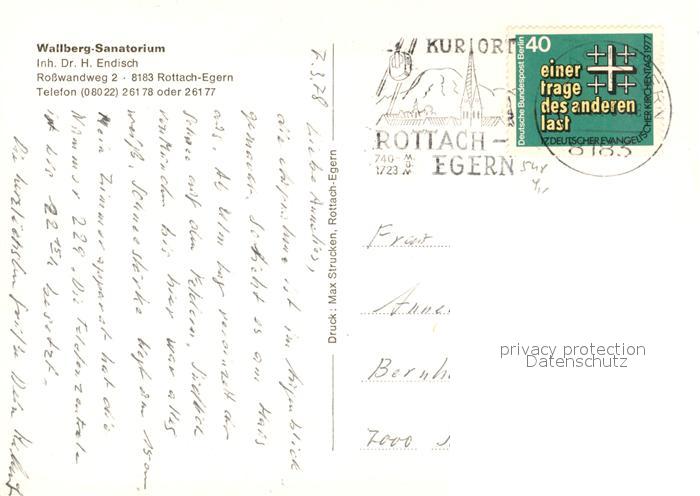 Wallberg-Sanatorium
Inh. Dr. H. Endisch
Roßwandweg 2 · 8183 Rottach-Egern
Telefon (08022) 26178 oder 26177
KURORT
ROTTACH-
EGERN
8183
Deutsche Bundespost Berlin
40
einer
trage
des anderen
last
17. DEUTSCHER EVANGELISCHER KIRCHENTAG 1977
Druck: Max Strucken, Rottach-Egern
7.3.78
Liebe Annelies,
die ist im Augenblick
gemacht. So sieht es am Haus
aus. Ab Ulm lag vereinzelt der
Schnee auf den Feldern. Südlich
von München bis hier war alles
weiß. Schneestärke hier 15 cm.
Mein Zimmerapparat hat die
Nummer 229. Die Telefonzentrale
ist bis 22 besetzt.
Die herzlichsten Grüße Dein
Frau
Anne
Bernh
7000
privacy protection
Datenschutz